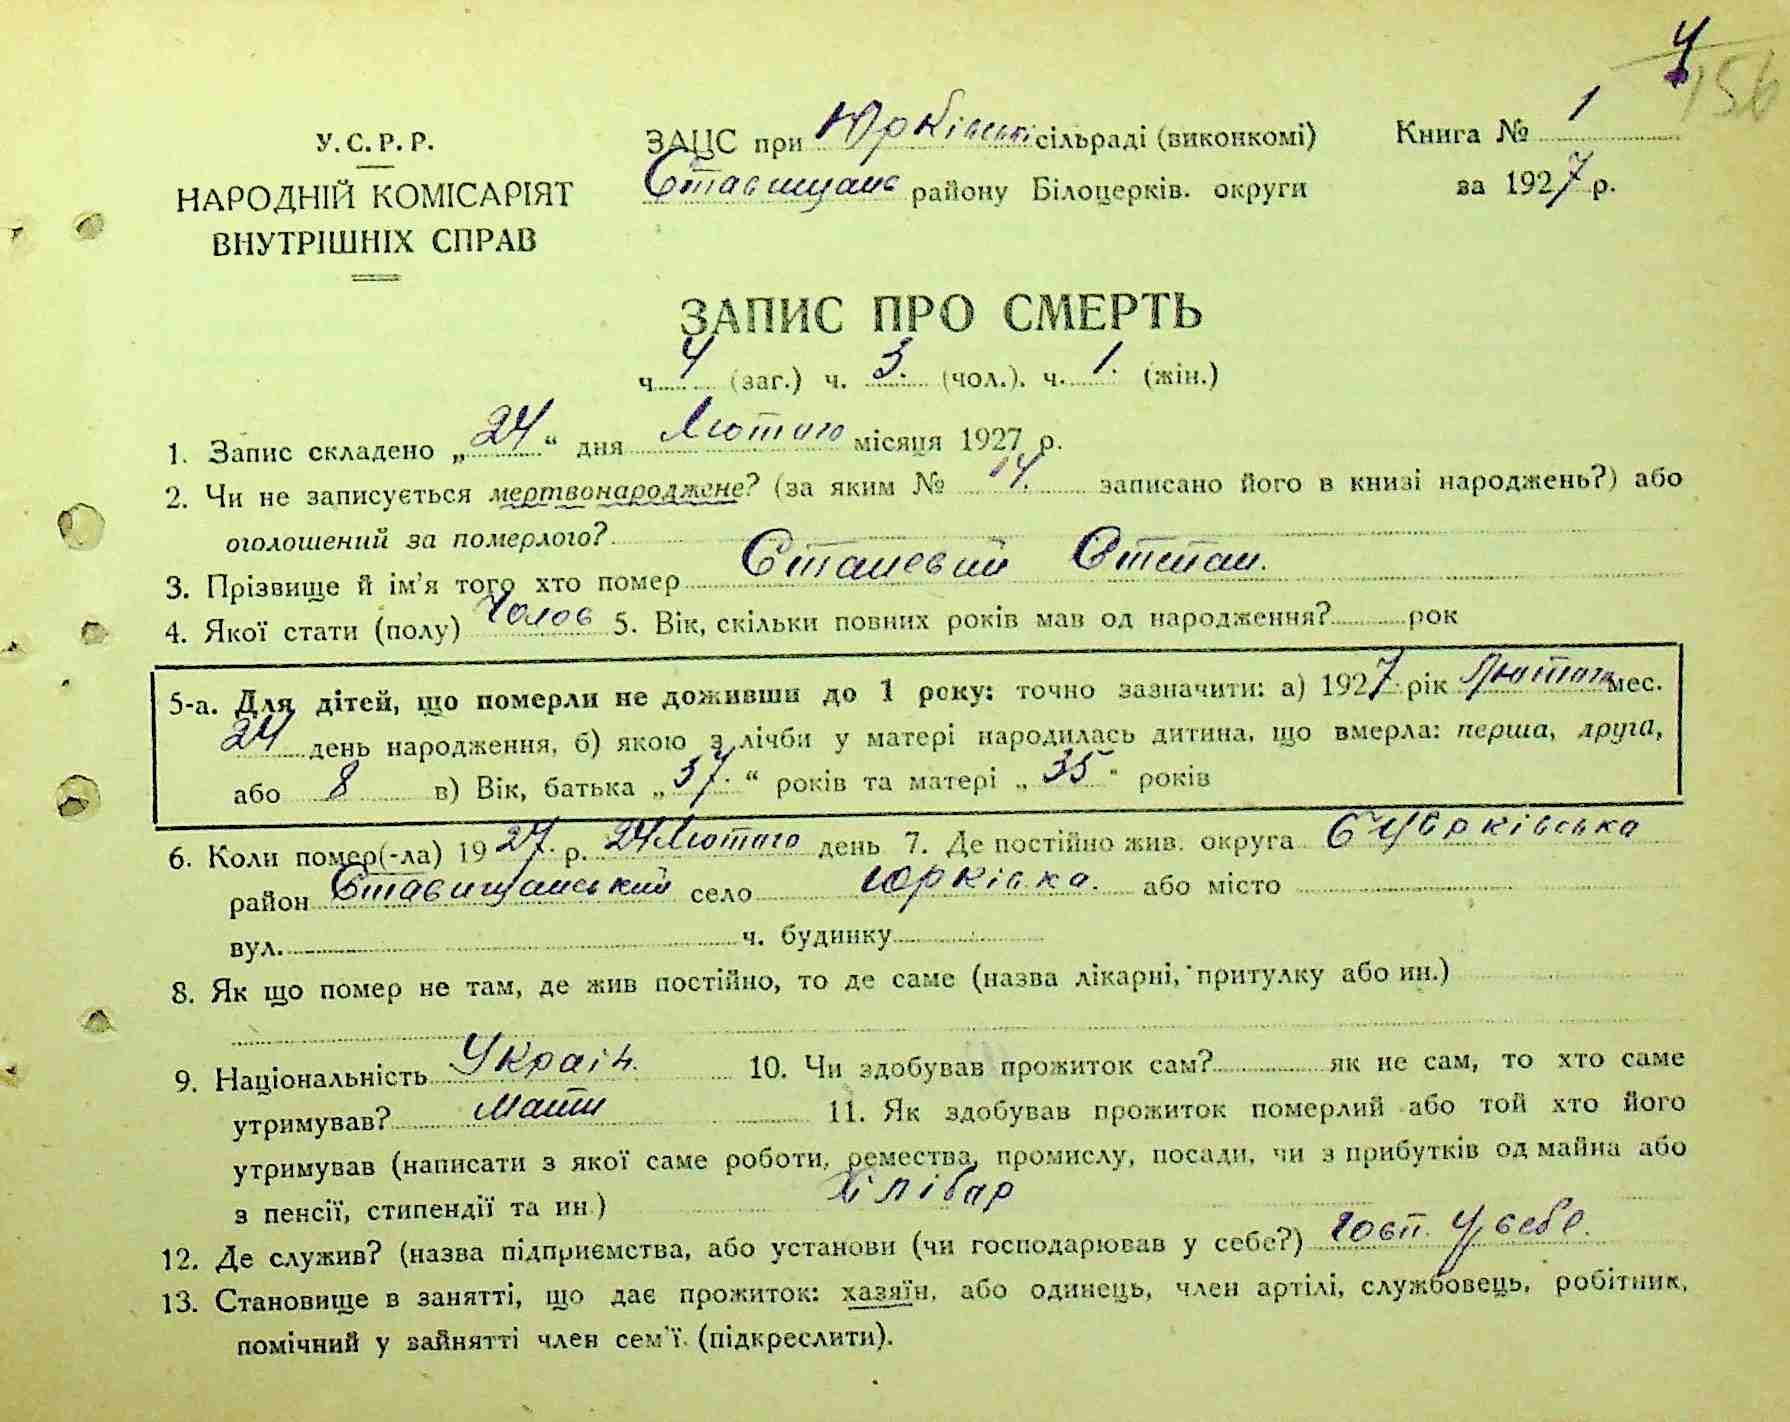 4
156
У.С.Р.Р.
НАРОДНІЙ КОМІСАРІЯТ
ВНУТРІШНІХ СПРАВ
ЗАЦС при Юрківські сільраді (виконкомі)
Ставищанс району Білоцерків. округи
Книга № 1
за 1927 р.
ЗАПИС ПРО СМЕРТЬ
ч. 4 (заг.) ч. 3. (чол.). ч. 1. (жін.)
1. Запис складено „24“ дня Лютого місяця 1927 р.
2. Чи не записується мертвонароджене? (за яким № 14. записано його в книзі народжень?) або
оголошений за померлого?
3. Прізвище й ім'я того хто помер Степан.
4. Якої стати (полу) Чолов 5. Вік, скільки повних років мав од народження? рок
5-а. Для дітей, що померли не доживши до 1 року: точно зазначити: а) 1927 рік Лютого мес.
24 день народження, б) якою з лічби у матері народилась дитина, що вмерла: перша, друга,
або 8 в) Вік, батька „37.“ років та матері „35“ років
6. Коли помер(-ла) 1927. р. 24 Лютого день 7. Де постійно жив. округа
район Ставищанський село Юрківка. або місто
вул. ч. будинку
8. Як що помер не там, де жив постійно, то де саме (назва лікарні, притулку або ин.)
9. Національність Україн. 10. Чи здобував прожиток сам? як не сам, то хто саме
утримував? Мати 11. Як здобував прожиток померлий або той хто його
утримував (написати з якої саме роботи, ремества, промислу, посади, чи з прибутків од майна або
з пенсії, стипендії та ин.) Хлібар
12. Де служив? (назва підприємства, або установи (чи господарював у себе?) Госп. У себе.
13. Становище в занятті, що дає прожиток: хазяїн, або одинець, член артілі, службовець, робітник,
помічний у зайнятті член сем'ї. (підкреслити).